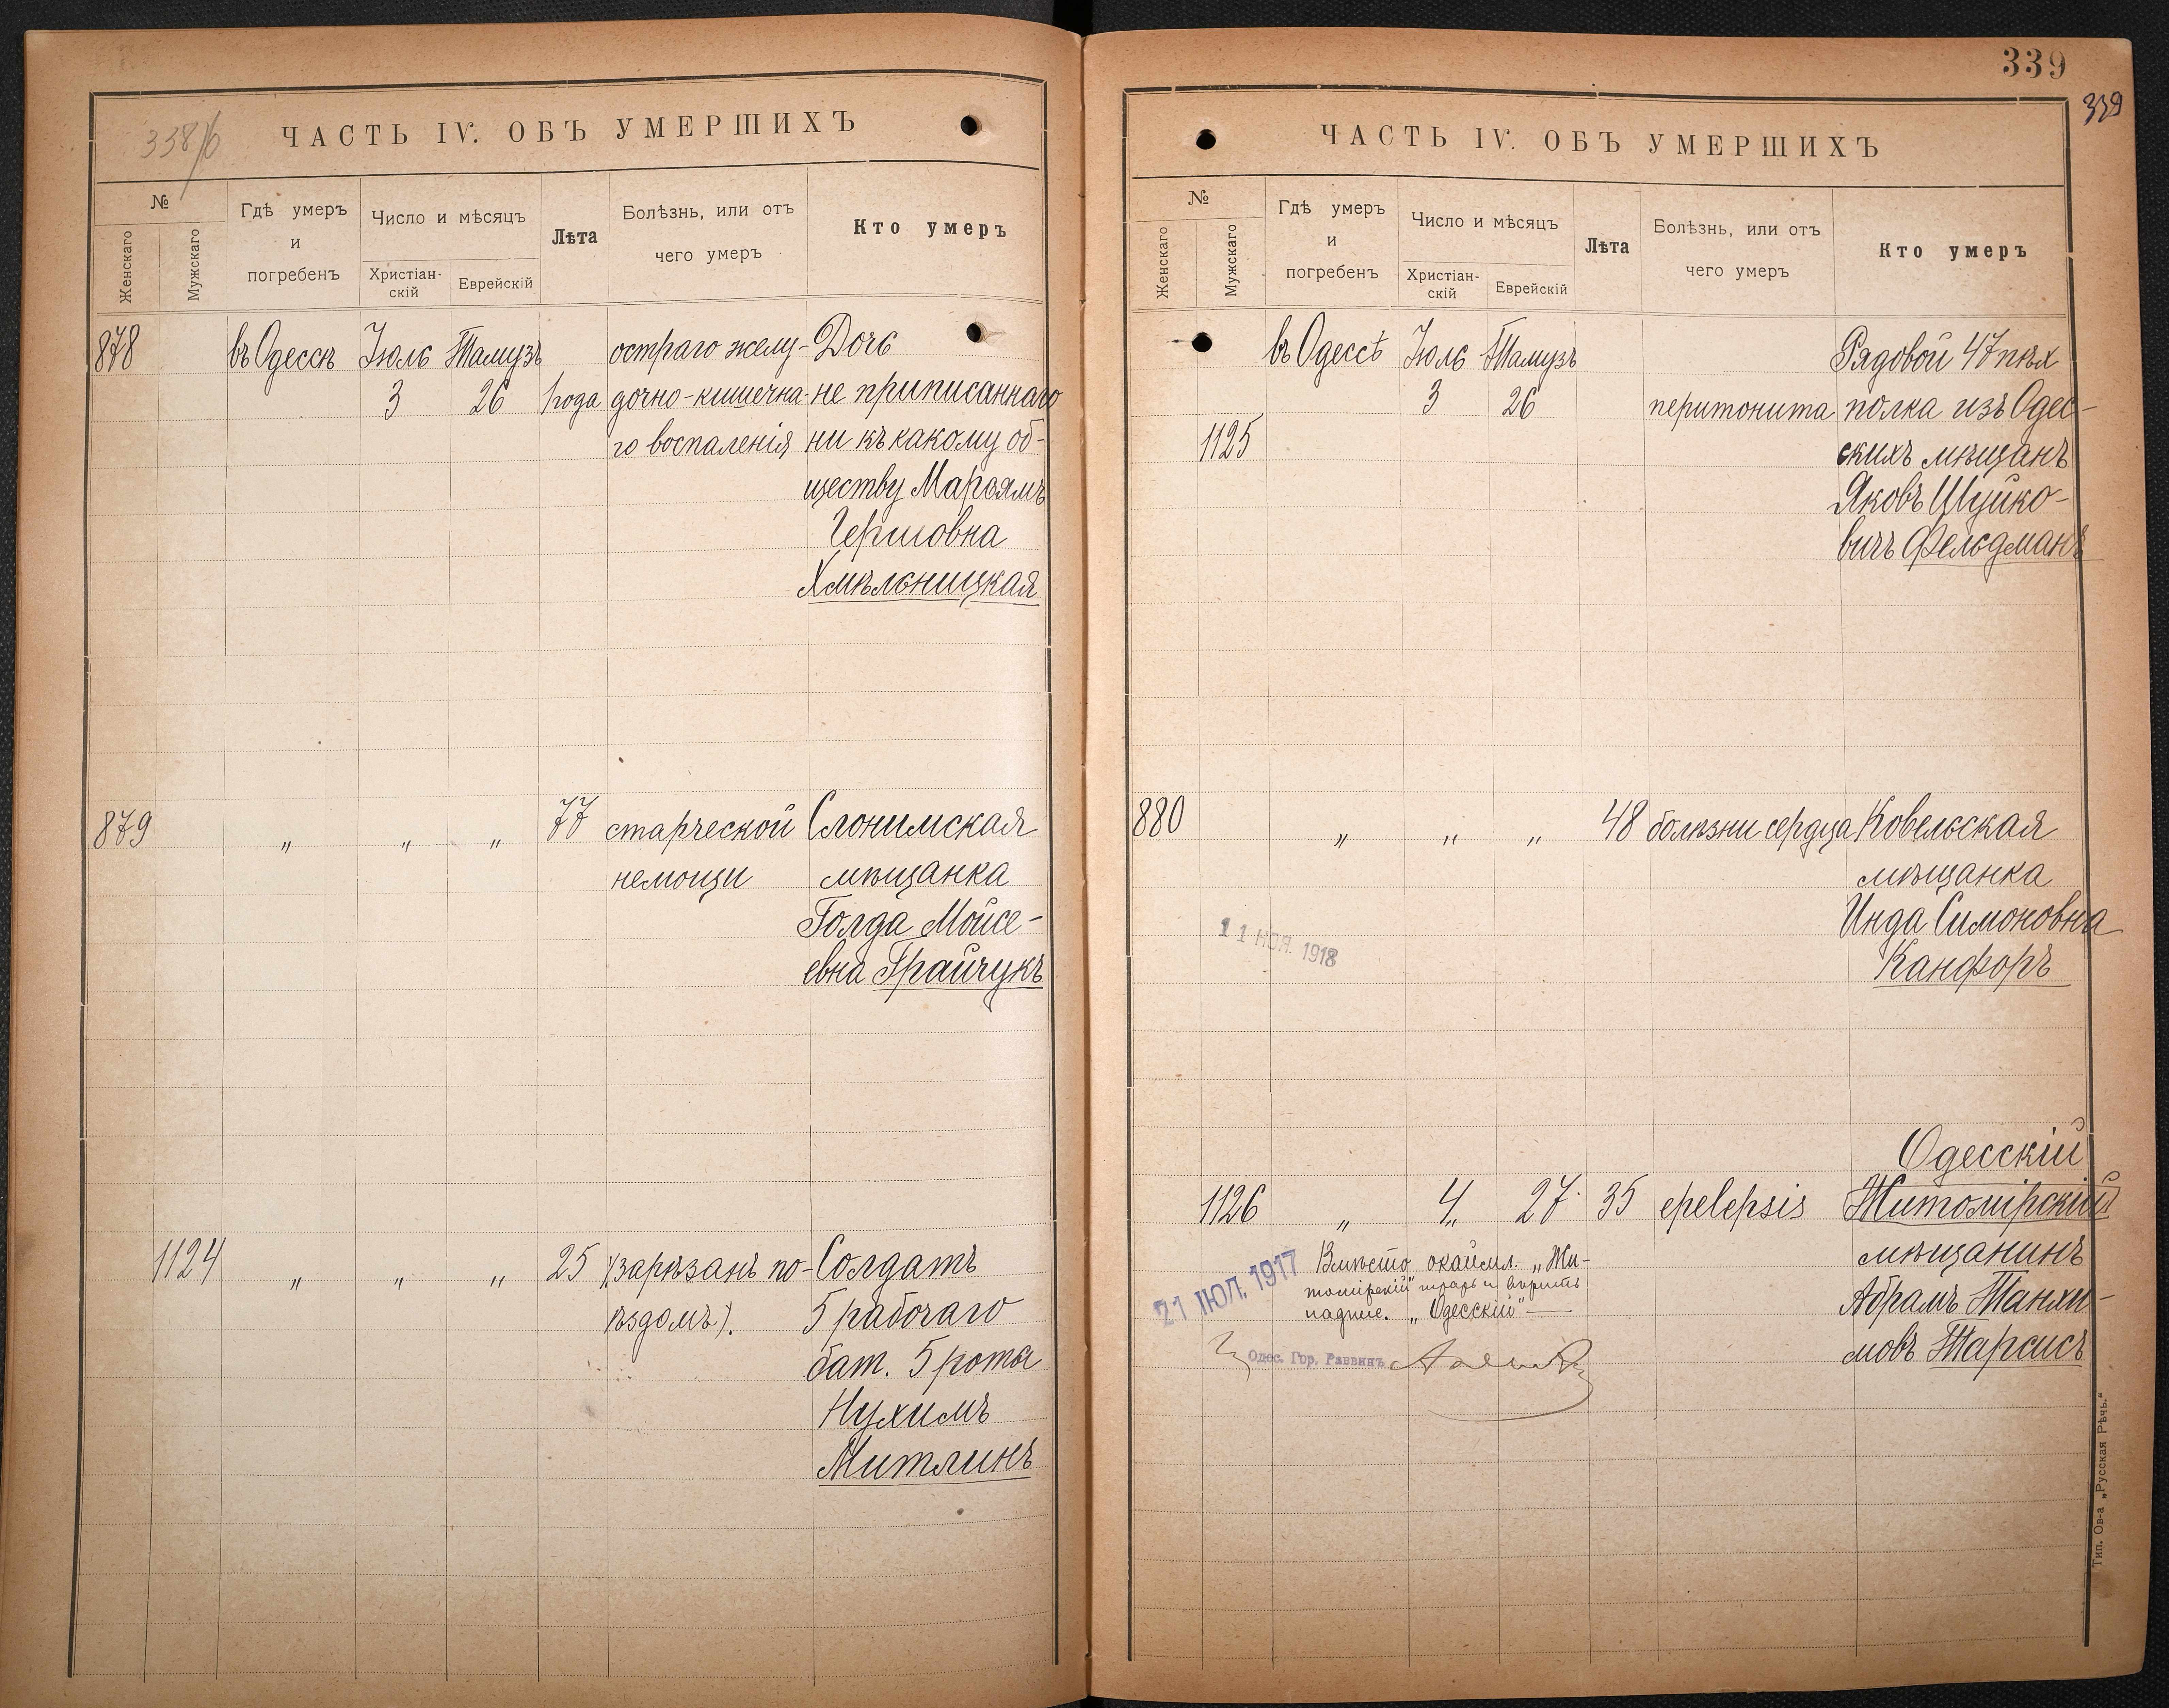 338/б
ЧАСТЬ IV. ОБЪ УМЕРШИХЪ
№
Женскаго
Мужскаго
Гдѣ умеръ
и
погребенъ
Число и мѣсяцъ
Христіан-
скій
Еврейскій
Лѣта
Болѣзнь, или отъ
чего умеръ
Кто умеръ
878 въ Одессѣ Іюль Тамузъ остраго желу- Дочь
3 26 1 года дочно-кишечна- не приписаннаго
го воспаленія ни къ какому об-
ществу Марьямъ
Гершовна
Хмѣльницкая
879 „ „ „ 77 старческой Слонимская
немощи мѣщанка
Голда Мойсе-
евна Грайчукъ
1124 „ „ „ 25 (зарѣзанъ по- Солдатъ
ѣздомъ). 5 рабочаго
бат. 5 роты
Нухимъ
Митлинъ
339
339
ЧАСТЬ IV. ОБЪ УМЕРШИХЪ
№
Женскаго
Мужскаго
Гдѣ умеръ
и
погребенъ
Число и мѣсяцъ
Христіан-
скій
Еврейскій
Лѣта
Болѣзнь, или отъ
чего умеръ
Кто умеръ
въ Одессѣ Іюль Тамузъ Рядовой 47 пѣх
3 26 перитонита полка изъ Одес-
1125 скихъ мѣщанъ
Яковъ Шуйко-
вичъ Фельдманъ
880 „ „ „ 48 болѣзни сердца Ковельская
мѣщанка
Инда Симоновна
Канфоръ
11 НОЯ. 1918
Одесскій
1126 „ 4 „ 27 35 epelepsis Житомірскій
мѣщанинъ
Абрамъ Танхи-
мовъ Тарсисъ
21 ІЮЛ. 1917
Вмѣсто окаймл. „Жи-
томірскій“ и вѣрить
надпис. „Одесскій“ —
Одес. Гор. Раввинъ
Тип. Ов-а „Русская Рѣчь.“